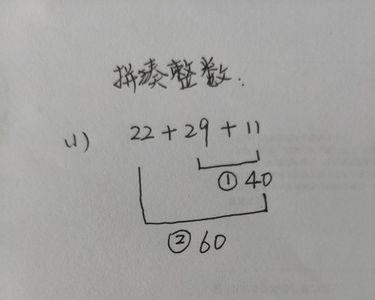 拼凑整数:
(1) 22+29+11
① 40
② 60